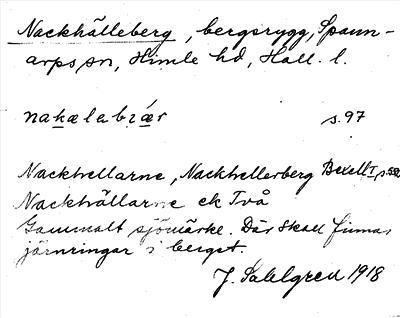 Nackhälleberg, bergsrygg, Spann-
arps sn, Himle hd, Hall. l.
nakælabræ̀r s. 97
Nackhellarne, Nackhellerberg Bexell I, s.
Nackhällarne ek Två
Gammalt sjömärke. Där skall finnas
järnringar i berget.
J. Sahlgren 1918